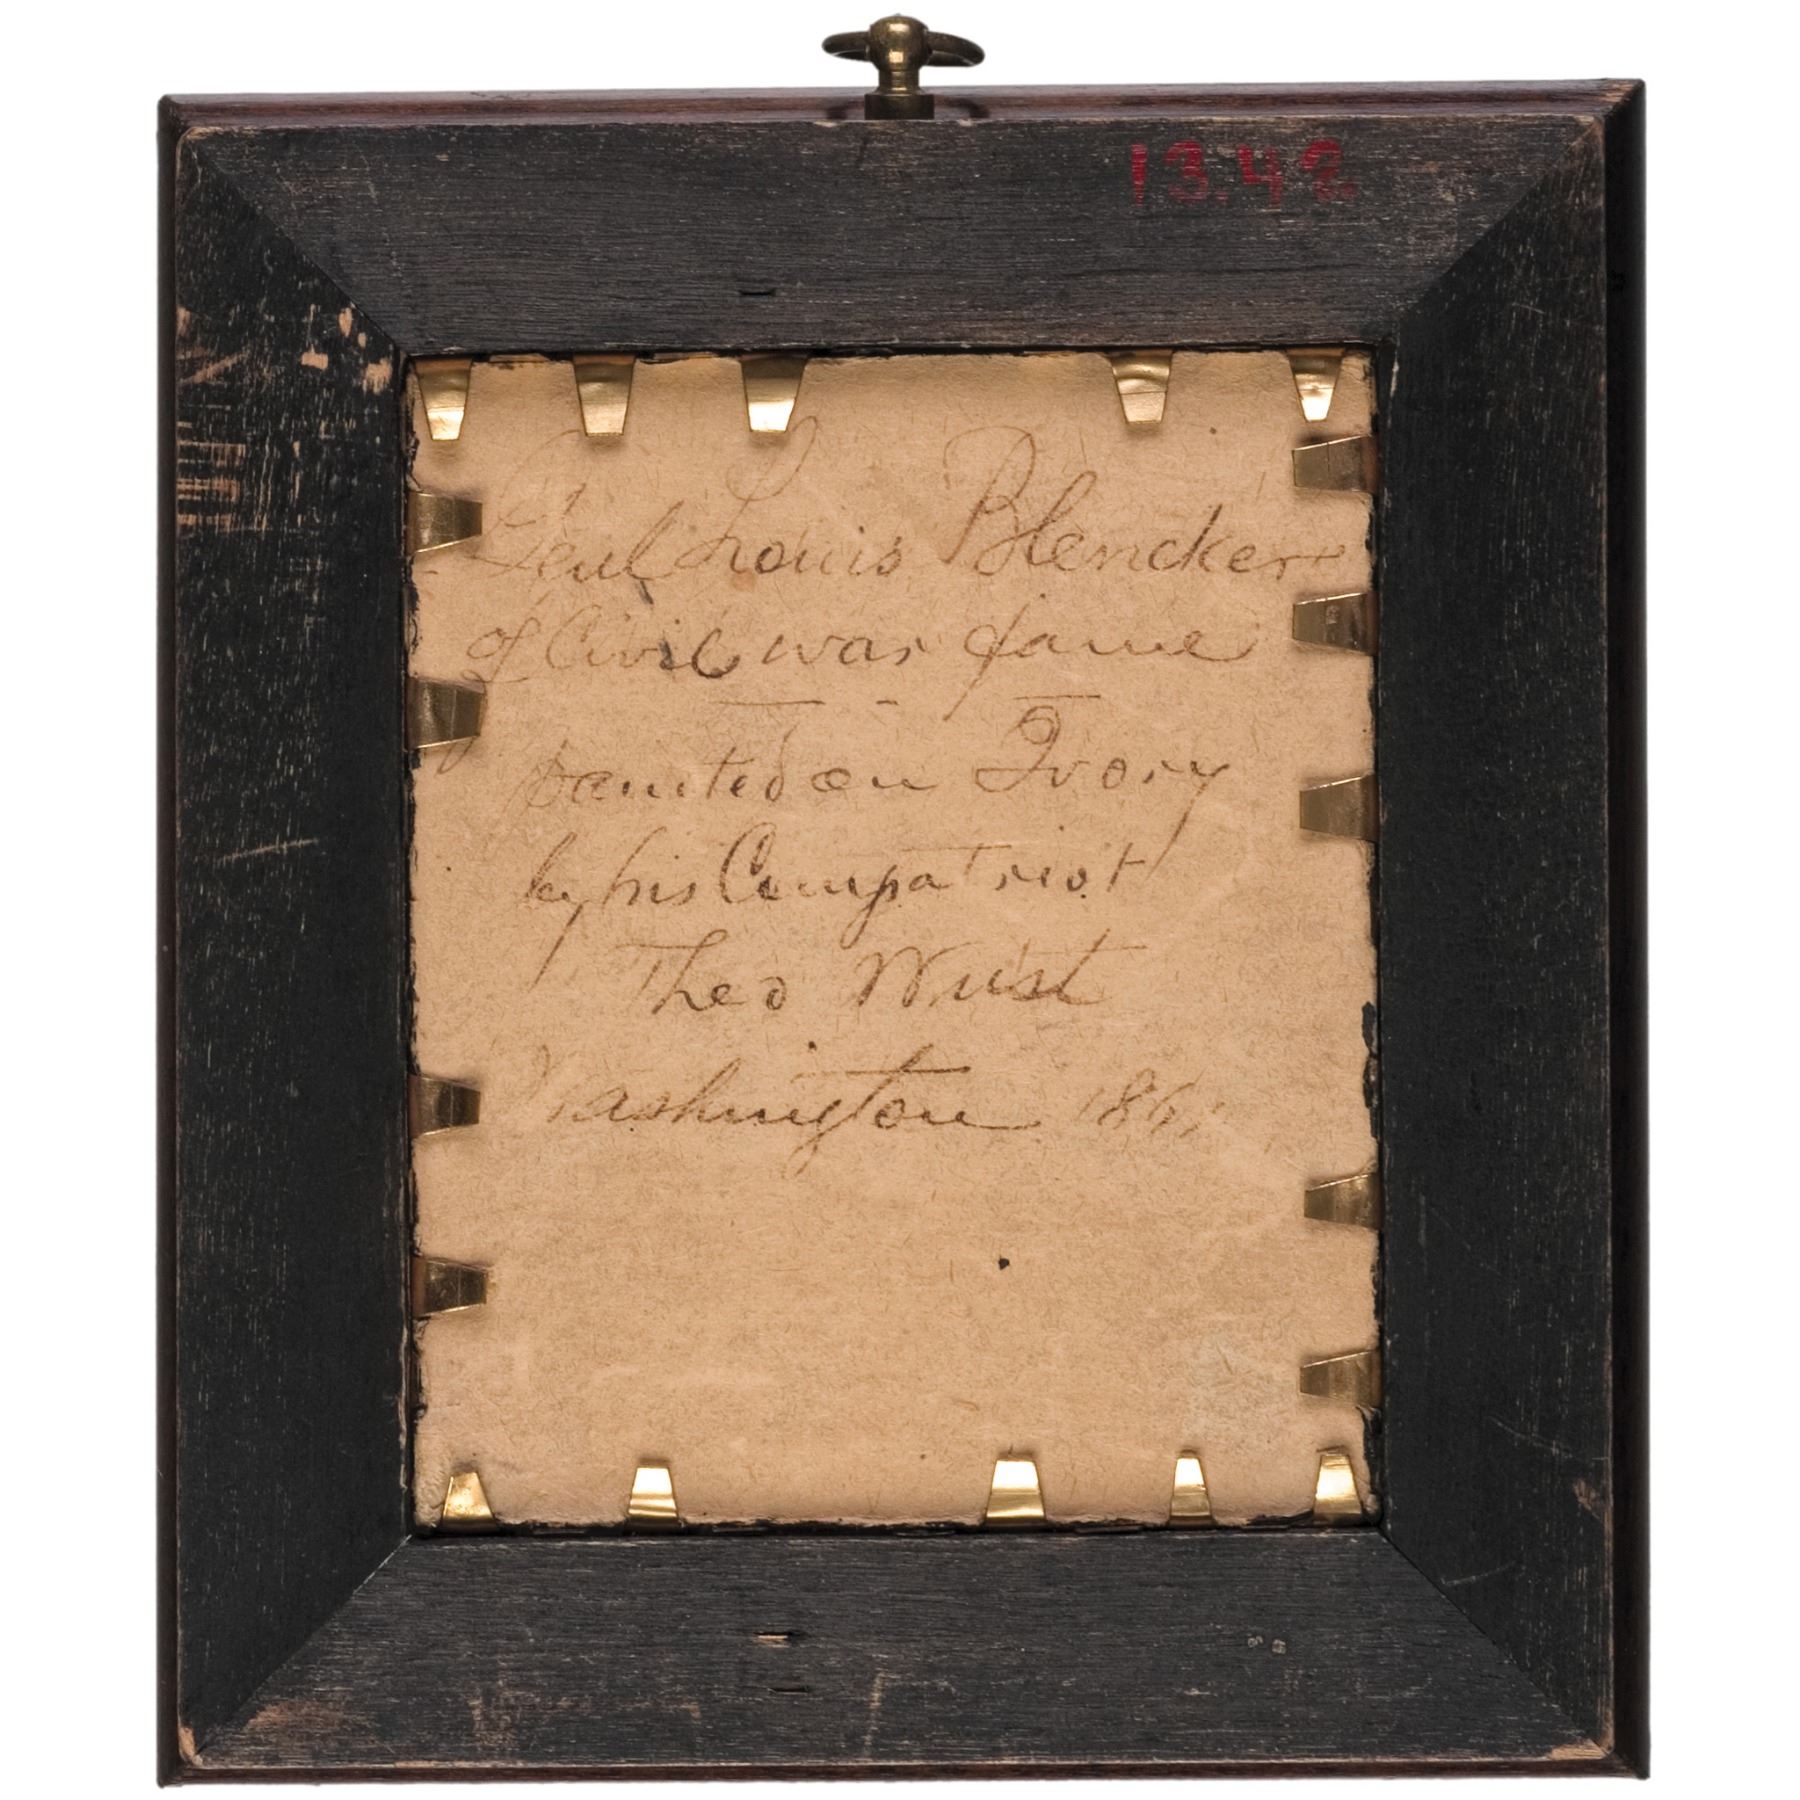 13.42
Genl Louis Blencker
of Civil war fame
painted on Ivory
by his Compatriot
Theo Wust
Washington 1861